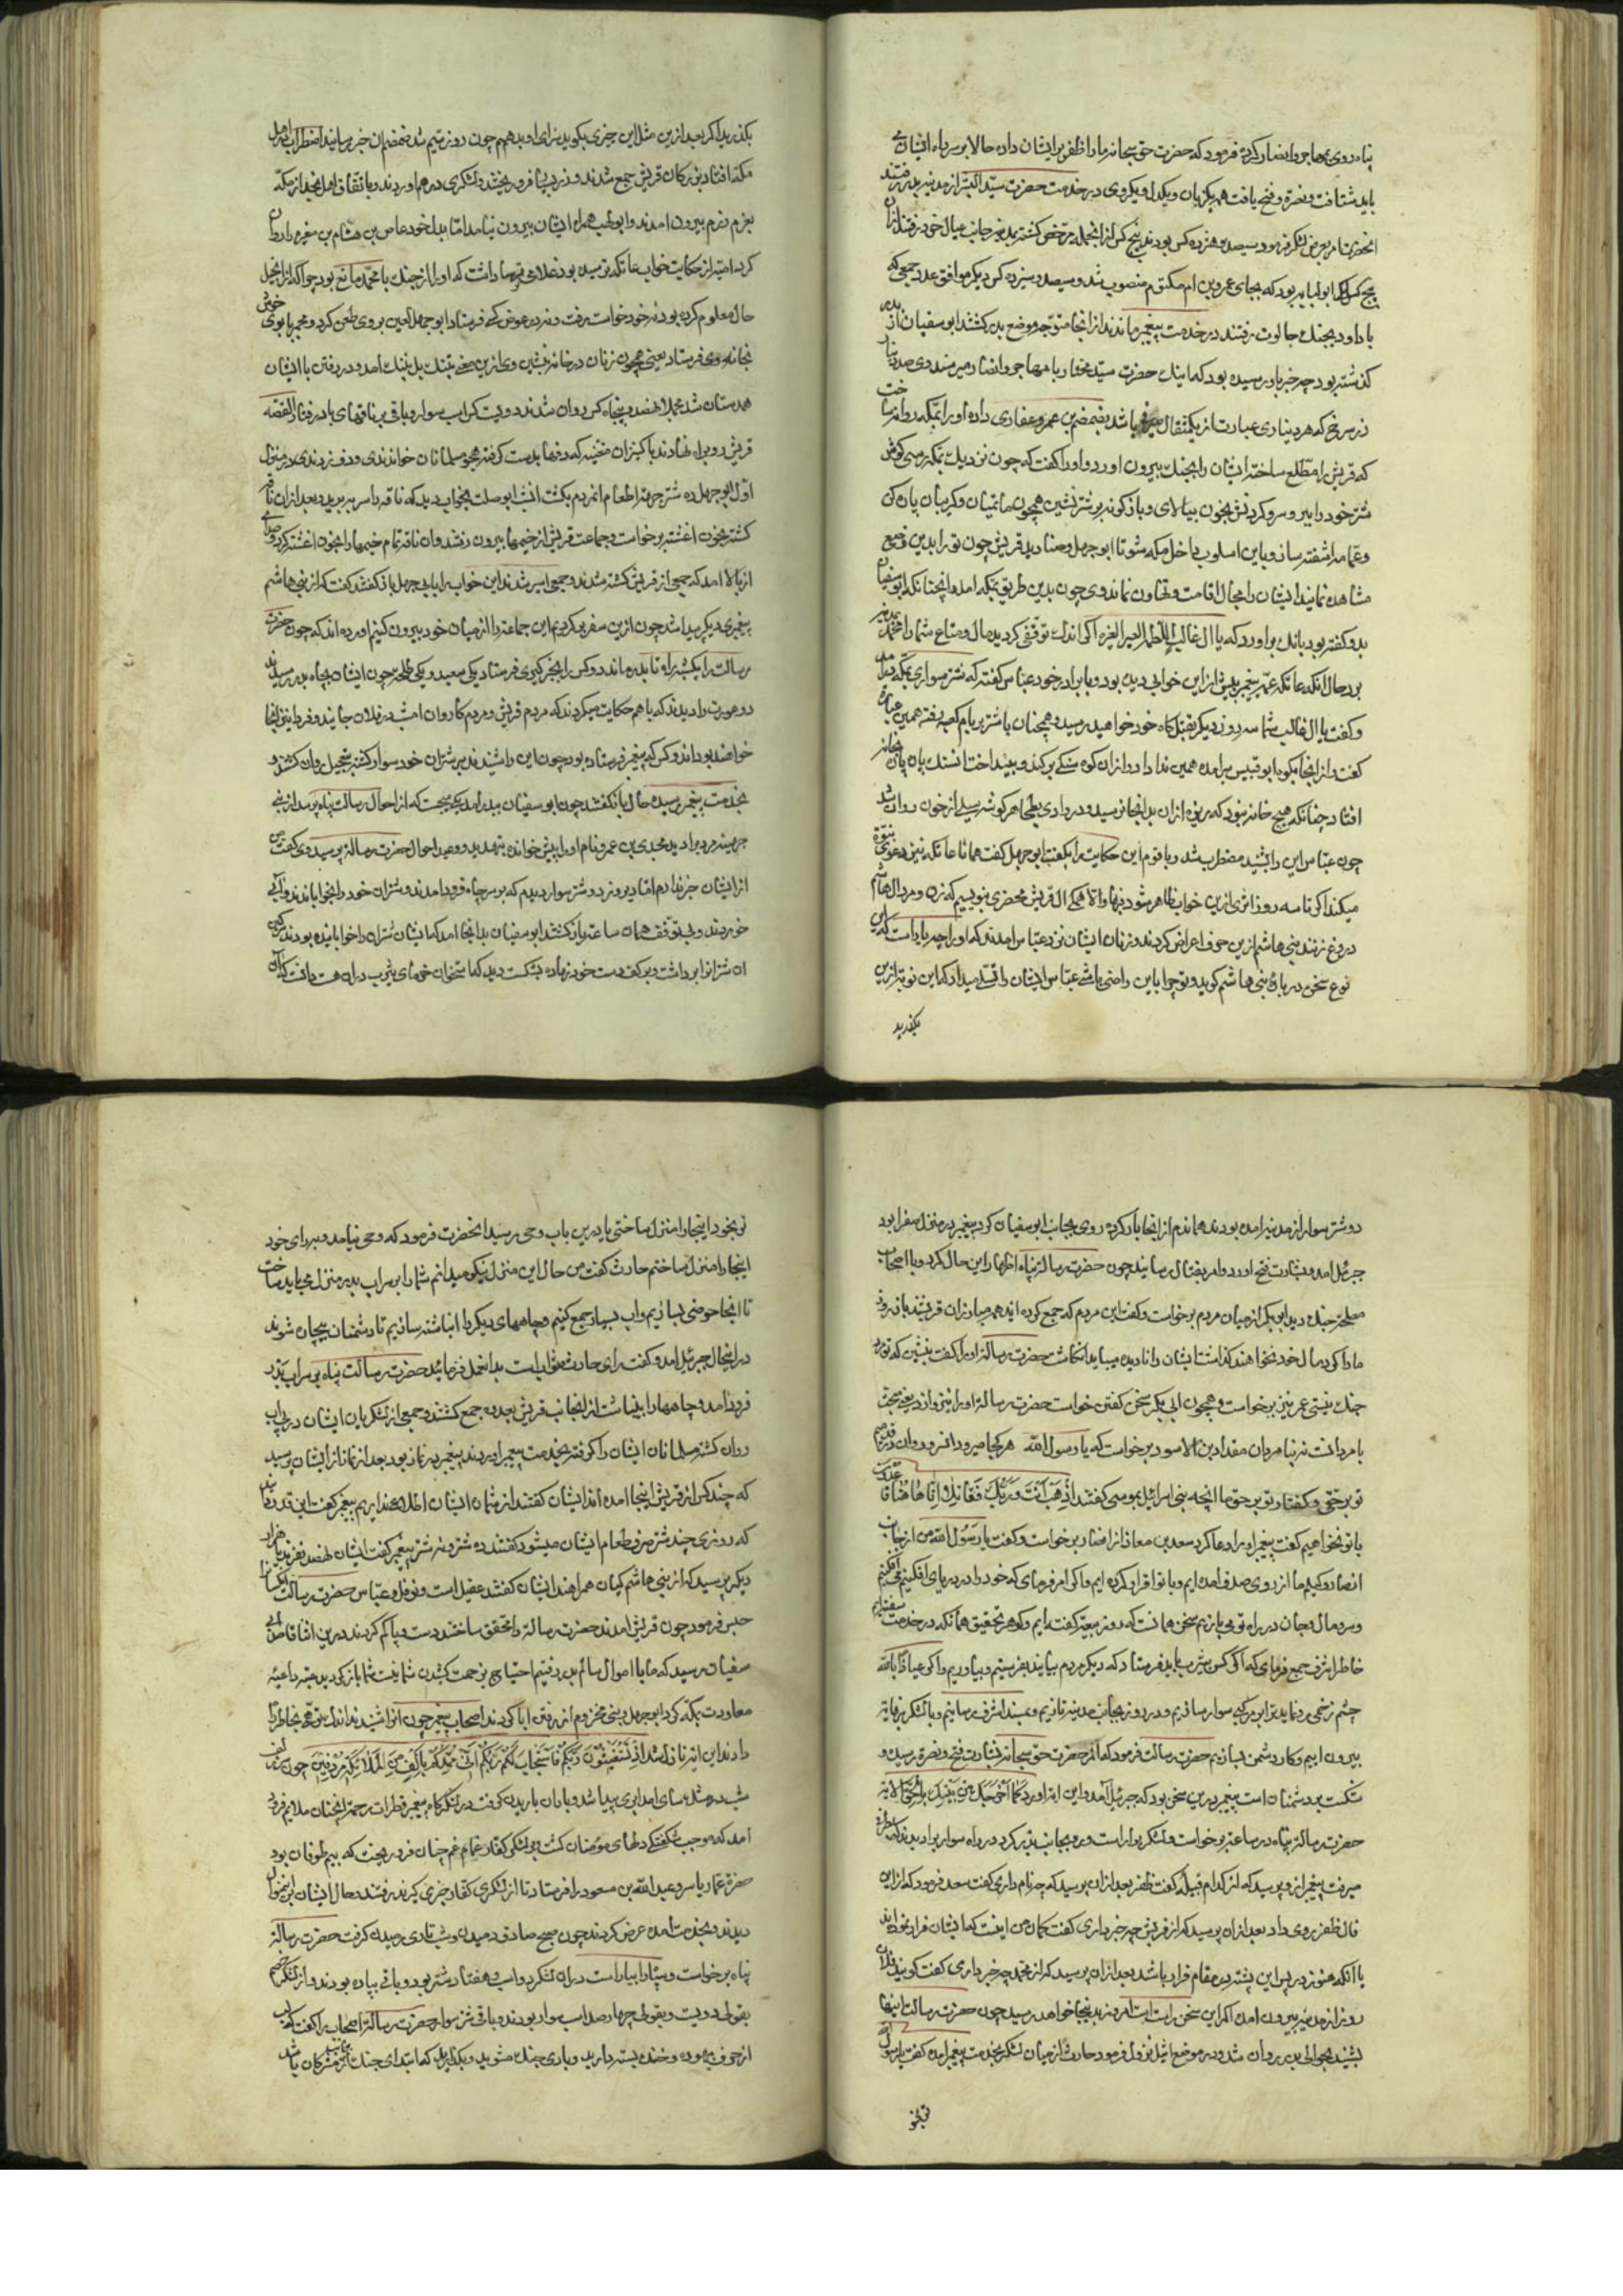 پناه روی بمهاجر و انصار کرده فرمود که حضرت حق سبحانه ما را ظفر بر ایشان داده حالا بر سر راه ایشان می
باید شتافت و نصرة و فتح یافت همه یکزبان و یکدل و یکروی در خدمت حضرت سید البشر از مدینه بدر رفتند
انحضرت امر بعرض لشکر فرمود سیصد و هژده کس بودند پنج کس از انجمله مرخص کشته بمدینه جانب عیال خود رفتند از ان
پنج کس یکی ابو لبابه بود که بجای عمرو بن ام مکتوم منصوب شد و سیصد و سیزده کس دیکر موافق عدد جمعی که
با داود بجنك جالوت رفتند در خدمت پیغمبر ماندند از انجا متوجه موضع بدر کشتند ابو سفیان از بدر
کذشته بود چه خبر باو رسیده بود که اینك حضرت سید مختار با مهاجر و انصار میرسند وی صد دینار
زر سرخ که هر دیناری عبارت از یکمثقال باشد بضمضم بن عمرو غفاری داده او را بمکه روانه ساخت
که قریش را مطلع ساخته ایشان را بجنك بیرون اورد و او را کفت که چون نزدیك بمکه رسی کوش
شتر خود را ببر و سر و کردنش بخون بیالای و باژکونه بر شتر نشین همچون ماتمیان و کریبان پاره کن
و عمامه اشفته ساز و باین اسلوب داخل مکه شو تا ابو جهل و صنادید قریش چون تو را بدین وضع
مشاهده نمایند ایشان را مجال اقامت و تهاون نماند وی چون بدین طریق بمکه امد و انچنانکه ابو سفیان
بدو کفته بود بانك براورد که یا ال غالب اللطیمه العیر العیر اکر اندك توقفی کردید مال و متاع شما را محمد
برد حال انکه عاتکه عمه پیغمبر پیش ازین خوابی دیده بود و با برادر خود عباس کفته که شتر سواری بمکه در امد
و کفت یا ال غالب شما سه روز دیکر بقتل کاه خود خواهید رسید و همچنان با شتر بر بام کعبه رفته همین عبارة
کفت و از انجا بکوه ابو قبیس برامده همین ندا در داد و از ان کوه سنکی برکند و بینداخت ان سنك پاره پاره
افتاد چنانکه هیچ خانه نبود که ریزه از ان بدانجا نرسید و در وادی بطحا هر کوشه سیلی از خون روان شد
چون عباس این را بشنید مضطرب شد و با قوم این حکایت را بکفت ابو جهل کفت همانا عاتکه نیز دعوی نبوة
میکند اکر تا سه روز اثری ازین خواب ظاهر شود فبها و الا همکی ال قریش محضری نویسیم که زن و مرد ال هاشم
دروغ زنند بنی هاشم ازین حرف اعراض کردند و زنان ایشان نزد عباس امدند که او را چه یاراست که این
نوع سخن در باره بنی هاشم کوید و تو چرا باین راضی باشی عباس ایشان را تسلی میداد که این نوبت ازین
بکذرید
بکذرید اکر بعد ازین مثل این چیزی بکوید سزای او بدهم چون روز سیم شد ضمضم ان خبر رسانید اضطراب در اهل
مکه افتاد بزرکان قریش جمع شدند و زر بسیار فرو ریختند و لشکری درهم اوردند و باتفاق اهل نجد از مکه
بعزم رزم بیرون امدند و ابو لهب همراه ایشان بیرون نیامد اما بدل خود عاص بن هشام بن مغیره را روان
کرد امیه از حکایت خواب عاتکه ترسیده بود غلامی ترسا داشت که او را از جنك با محمد مانع بود چرا که از انجیل
حال معلوم کرده بود نه خود خواست برفت و نه در عوض کسی فرستاد ابو جهل لعین بر وی طعن کرد و مجمر با بوی خوش
بخانه وی فرستاد یعنی همچون زنان در خانه نشین وی ازین سخن بتنك بل بننك امد و در رفتن با ایشان
همدستان شد مجملا نهصد و پنجاه کس روان شدند دویست کس اسب سوار و باقی بر ناقهای باد رفتار القصه
قریش رو براه نهادند با کنیزان مغنیه که دفها بدست کرفته هجو مسلمانان خواندندی و دف زدندی در منزل
اول ابو جهل ده شتر جهة اطعام انمردم بکشت انشب ابو صلت بخواب دید که ناقه را سر ببریدند بعد از ان ناقه
کشته بخون اغشته برخواست و جماعت قریش از خیمها بیرون رفتند و ان ناقه تمام خیمها را بخون اغشته کرد و صدائی
از بالا امد که جمعی از قریش کشته شدند و جمعی اسیر شدند این خواب را با ابی جهل بازکفتند کفت که از بنی هاشم
پیغمبری دیکر پیدا شد چون ازین سفر برکردیم این جماعة را از میان خود بیرون کنیم اورده اند که چون حضرت
رسالت را یکشبه راه تا بدر ماند دو کس را بخبرکیری فرستاد یکی سعید و یکی طلحه چون ایشان بچاه بدر رسیدند
دو عورت را دیدند که با هم حکایت میکردند که مردم قریش و مردم کاروان امشب در فلان جایند و فردا اینجا
خواهند بود ان دو کس که پیغمبر فرستاده بود چون این را شنیدند بر شتران خود سوار کشته بتعجیل روان کشتند و
بخدمت پیغمبر رسیده حال بازکفتند چون ابو سفیان ببدر امد یکی میجست که از احوال رسالت پناه پرسد از بنی
جهینه مردی را دید مجدی بن عمرو نام او را پیش خوانده بتهدید و وعید احوال حضرت رسالة پرسید وی کفت من
از ایشان خبر ندارم اما دیروز دو شتر سوار دیدم که بر سر چاه فرود امدند و شتران خود را بخوابانندند و ابی
خوردند و بی توقف همان ساعت بازکشتند ابو سفیان بدانجا امد که ایشان شتران را خوابانیده بودند سرکین
ان شترانرا برداشت و بر کف دست خود نهاده بشکست دید که استخوان خرمای یثرب در ان هست دانست که ان
دو شتر سوار از مدینه امده بودند هماندم از انجا بار کرده روی بجانب ابو سفیان کرد پیغمبر در منزل صفرا بود
جبرئیل امد و بشارت فتح اورد و امر بقتال رسانید چون حضرت رسالة پناه اظهار این حال کرد و با اصحاب
مصلحة جنك دید ابو بکر از میان مردم برخواست و کفت این مردم که جمع کرده اند همه مبارزان قریشند باز روند
ما را کی در مال خود نخواهند کذاشت ایشان را نادیده میباید انکاشت حضرت رسالة او را کفت بنشین که تو مرد
جنك نیستی عمر نیز برخواست و همچون ابی بکر سخن کفتن خواست حضرت رسالة او را نیز از دریغ بحث
با مرد انست نه نامردان مقداد بن الاسود برخواست که یا رسول الله هر کجا میروی انسرو روان در قدم
تو برحقی و کفتار تو بر حق ما انچه بنی اسرائیل بموسی کفتند اذهب انت و ربك فقاتلا انا هاهنا قاعدون
با تو نخواهیم کفت پیغمبر او را دعا کرد سعد بن معاذ از انصار برخواست و کفت یا رسول الله من از جانب
انصار وکیلم ما از روی صدق امده ایم و با تو اقرار کرده ایم و اکر امر فرمای که خود را در دریای افکنیم می افکنیم
و سر و مال و جان در راه تو می بازیم سخن همانست که روز بیعة کفته ایم و کوهر تحقیق همانکه در خدمت سفته ایم
خاطر اشرف جمع فرمای که اکر کس بیثرب باید فرستاد که دیکر مردم بیایند بفرستیم و بیاوریم و اکر عیاذا بالله
چشم زخمی رو نماید ترا بر مرکبی سوار سازیم و در دو روز بجانب مدینه تازیم و بمسند اشرف رسانیم و با لشکر بی نهایة
بیرون اییم و کار دشمن بسازیم حضرت رسالت فرمود که از حضرت حق سبحانه بشارت فتح و نصرة رسیده و
شکست بر دشمنان است پیغمبر درین سخن بود که جبرئیل امد و این ایه اورد کما اخرجك ربك من بیتك بالحق الایه
حضرت رسالة پناه در ساعة برخواست و لشکر بیاراست و رو بجانب بدر کرد در راه سوار براو دیدند که طرفی
میرفت پیغمبر ازو پرسید که از کدام قبیله کفت ظفر بعد از ان پرسید که چه نام داری کفت سعد فرمود که از این
فال ظفر روی داد بعد از ان پرسید که از قریش چه خبر داری کفت کمان من اینست که ایشان فرار نموده اند
با انکه هنوز در پس این پشته در مقام قرار باشند بعد از ان پرسید که از محمد چه خبر داری کفت کویند فلان
روز از مدینه بیرون امده اکر این سخن راست است امروز بدینجا خواهد رسید چون حضرت رسالت اینها
بشنید بحوالی بدر روان شد و در موضع اثیل نزول فرمود حارث از میان لشکر بخدمت پیغمبر امده کفت یا رسول الله
تو بخو
تو بخود اینجا را منزل ساختی یا درین باب وحی رسید انحضرت فرمود که وحی نیامد و برای خود
اینجا را منزل ساختم حارث کفت من حال این منزل نیکو میدانم شما را بر سر اب بدر منزل میباید ساخت
تا انجا حوضی بسازیم و اب بسیار جمع کنیم و چاههای دیکر را انباشته سازیم تا دشمنان پیچان شوند
در اینحال جبرئیل امد و کفت رای حارث صوابست بدان عمل فرمائید حضرت رسالت پناه بر سر اب بدر
فرود امد و چاهها را بینباشت از انجانب قریش بعدوه جمع کشتند و جمعی از لشکریان ایشان در پی اب
روان کشته مسلمانان ایشان را کرفته بخدمت پیغمبر اوردند پیغمبر در نماز بود بعد از نماز از ایشان پرسید
که چند کس از قریش اینجا امده اند ایشان کفتند از شمار ایشان اطلاع نداریم پیغمبر کفت این قدر دانید
که روزی چند شتر صرف طعام ایشان میشود کفتند ده شتر و نه شتر پیغمبر کفت ایشان نهصد نفرند یا هزار
دیکر پرسید که از بنی هاشم کیان همراهند ایشان کفتند عقیل است و نوفل و عباس حضرت رسالت ایشانرا
حبس فرمود چون قریش امدند حضرت رسالة را محقق ساختند دست و پا کم کردند درین اثنا قاصد ابی
سفیان رسید که ما با اموال سالم بدر رفتیم احتیاج بزحمت کشیدن شما نیست شما بازکردید عتبه داعیه
معاودت بمکه کرد ابو جهل و بنی مخزوم از رفتن ابا کردند اصحاب پیغمبر چون انرا شنیدند اندك توهمی بخاطر راه
دادند این ایه نازل شد اذ تستغیثون ربکم فاستجاب لکم ربکم انی ممدکم بالف من الملائکة مردفین چون
شب در مثل سای امد ابری پیدا شد و باران باریدن کرفت در لشکرکاه پیغمبر قطرات رحمة انچنان ملایم فرود
امد که موجب شکفتکی دلهای مؤمنان کشت و بر لشکر کفار غمام غم چنان فرو ریخت که بیم طوفان بود
حضرة عمار یاسر و عبد الله بن مسعود را فرستاد تا از لشکری کفار خبری کیرند رفتند و حال ایشان بر انمنوال
دیدند و بخدمت امده عرض کردند چون صبح صادق دمیدن و شب تاری رمیدن کرفت حضرت رسالة
پناه برخواست و سپاه را بیاراست در ان لشکر دو اسب و هفتاد شتر بود و باقی پیاده بودند و از لشکر خصم
بقولی دویست و بقولی چهار صد اسب سوار بودند و باقی شتر سوار حضرت رسالة اصحاب را کفت که لب
از حرف بیهوده و خنده بسته دارید و بادی جنك مشوید و بکذارید که ابتدای جنك از جانب مشرکان باشد